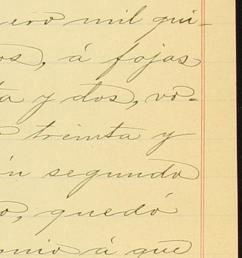 ero mil qui-
os, á fojas
ta y dos, vo-
treinta y
n segundo
o, quedó
onio á que